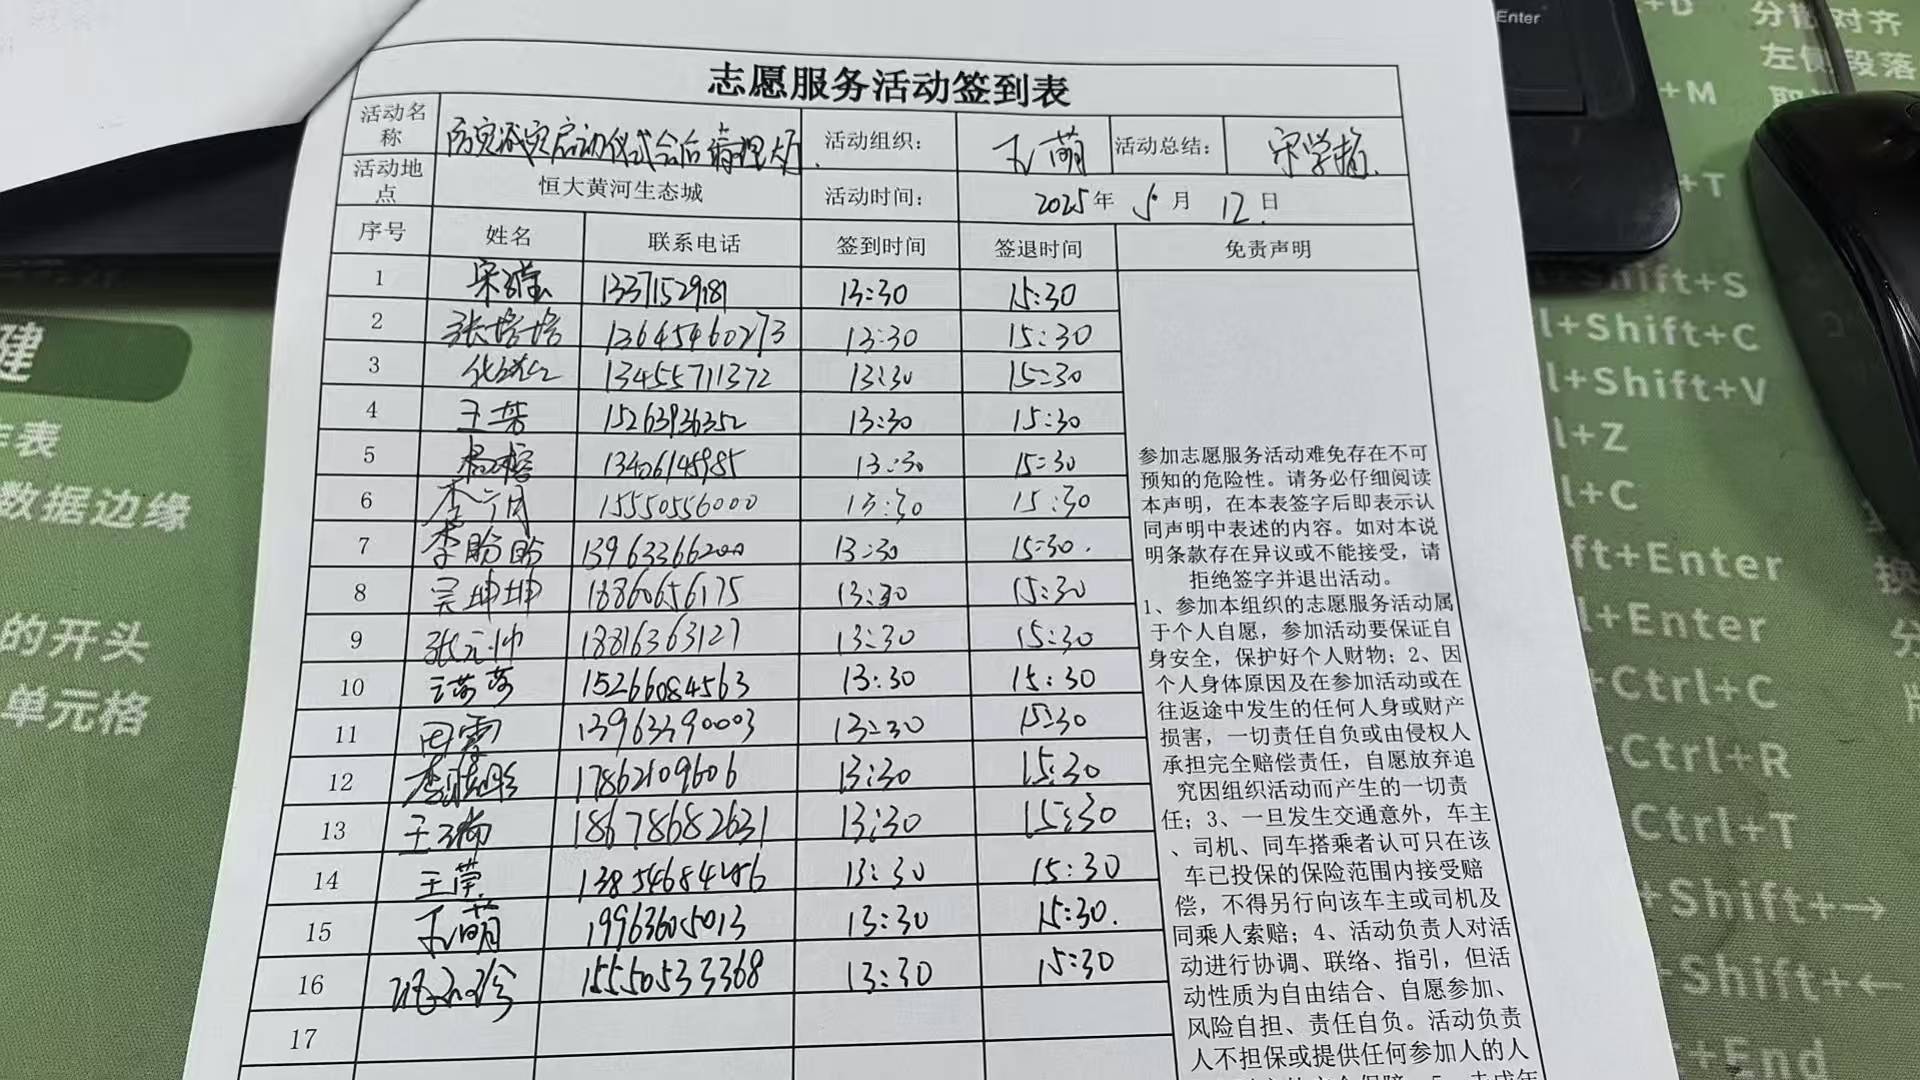 Enter
分散对齐
左侧段落
+D
+M
+T
Shift+S
l+Shift+C
l+Shift+V
l+Z
l+C
ft+Enter
l+Enter
+Ctrl+C
+Ctrl+R
Ctrl+T
+Shift+→
+Shift+←
+End
建
表
数据边缘
的开头
单元格
志愿服务活动签到表
活动名称 启动仪式会后清理大厅. 活动组织: 孔萌 活动总结: 宋学梅.
活动地点 恒大黄河生态城 活动时间: 2025年 5月 12日
序号 姓名 联系电话 签到时间 签退时间 免责声明
1 宋莹 13371529181 13:30 15:30
2 张培培 13645460273 13:30 15:30
3 13455711372 13:30 15:30
4 王芳 15263936352 13:30 15:30
5 杨榕 13406145985 13:30 15:30
6 15550556000 13:30 15:30
7 李盼盼 13963366200 13:30 15:30.
8 吴坤坤 18860656175 13:30 15:30
9 张元帅 18816363127 13:30 15:30
10 15266084563 13:30 15:30
11 田霞 13963390003 13:30 15:30
12 17862109606 13:30 15:30
13 王瑞 18678682631 13:30 15:30
14 王莹 13:30 15:30
15 孔萌 19963605013 13:30 15:30.
16 15550533368 13:30 15:30
17
参加志愿服务活动难免存在不可
预知的危险性。请务必仔细阅读
本声明，在本表签字后即表示认
同声明中表述的内容。如对本说
明条款存在异议或不能接受，请
拒绝签字并退出活动。
1、参加本组织的志愿服务活动属
于个人自愿，参加活动要保证自
身安全，保护好个人财物；2、因
个人身体原因及在参加活动或在
往返途中发生的任何人身或财产
损害，一切责任自负或由侵权人
承担完全赔偿责任，自愿放弃追
究因组织活动而产生的一切责
任；3、一旦发生交通意外，车主
、司机、同车搭乘者认可只在该
车已投保的保险范围内接受赔
偿，不得另行向该车主或司机及
同乘人索赔；4、活动负责人对活
动进行协调、联络、指引，但活
动性质为自由结合、自愿参加、
风险自担、责任自负。活动负责
人不担保或提供任何参加人的人